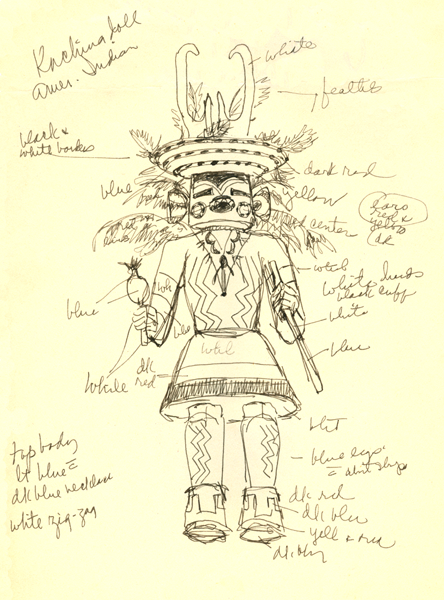 Kachina doll
Amer. Indian
white
feathers
black &
white border
dark red
blue
yellow
red center
ears
red &
yellow
dk
white
white hands
black cuff
white
wh
blue
blue
wh
white
white
dk
red
top body
lt blue =
dk blue necklace
white zig-zag
blue legs
= white strips
dk red
dk blue
yell & red
dk blue